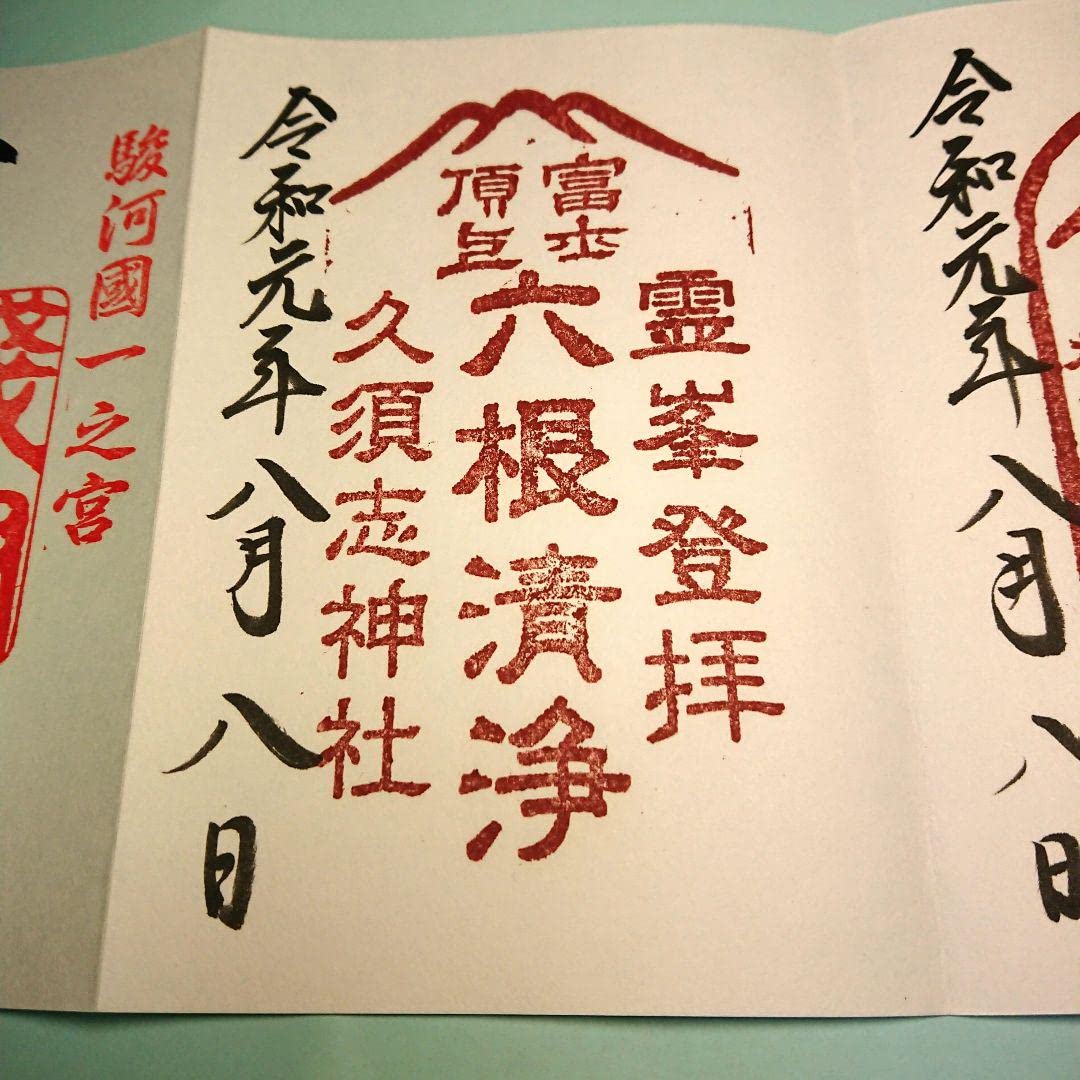 令和元年八月八日
富士
頂上
霊峯登拝
六根清浄
久須志神社
令和元年八月八日
駿河國一之宮